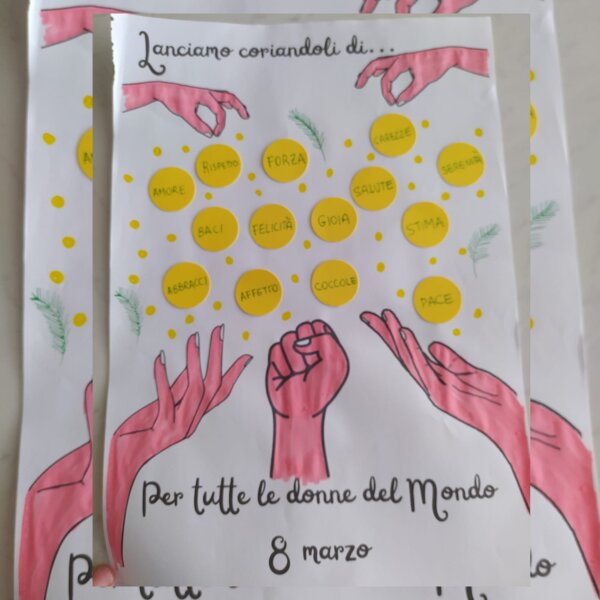 Lanciamo coriandoli di...
CAREZZE
RISPETTO
FORZA
SERENITÀ
AMORE
SALUTE
BACI
FELICITÀ
GIOIA
STIMA
ABBRACCI
AFFETTO
COCCOLE
PACE
Per tutte le donne del Mondo
8 marzo